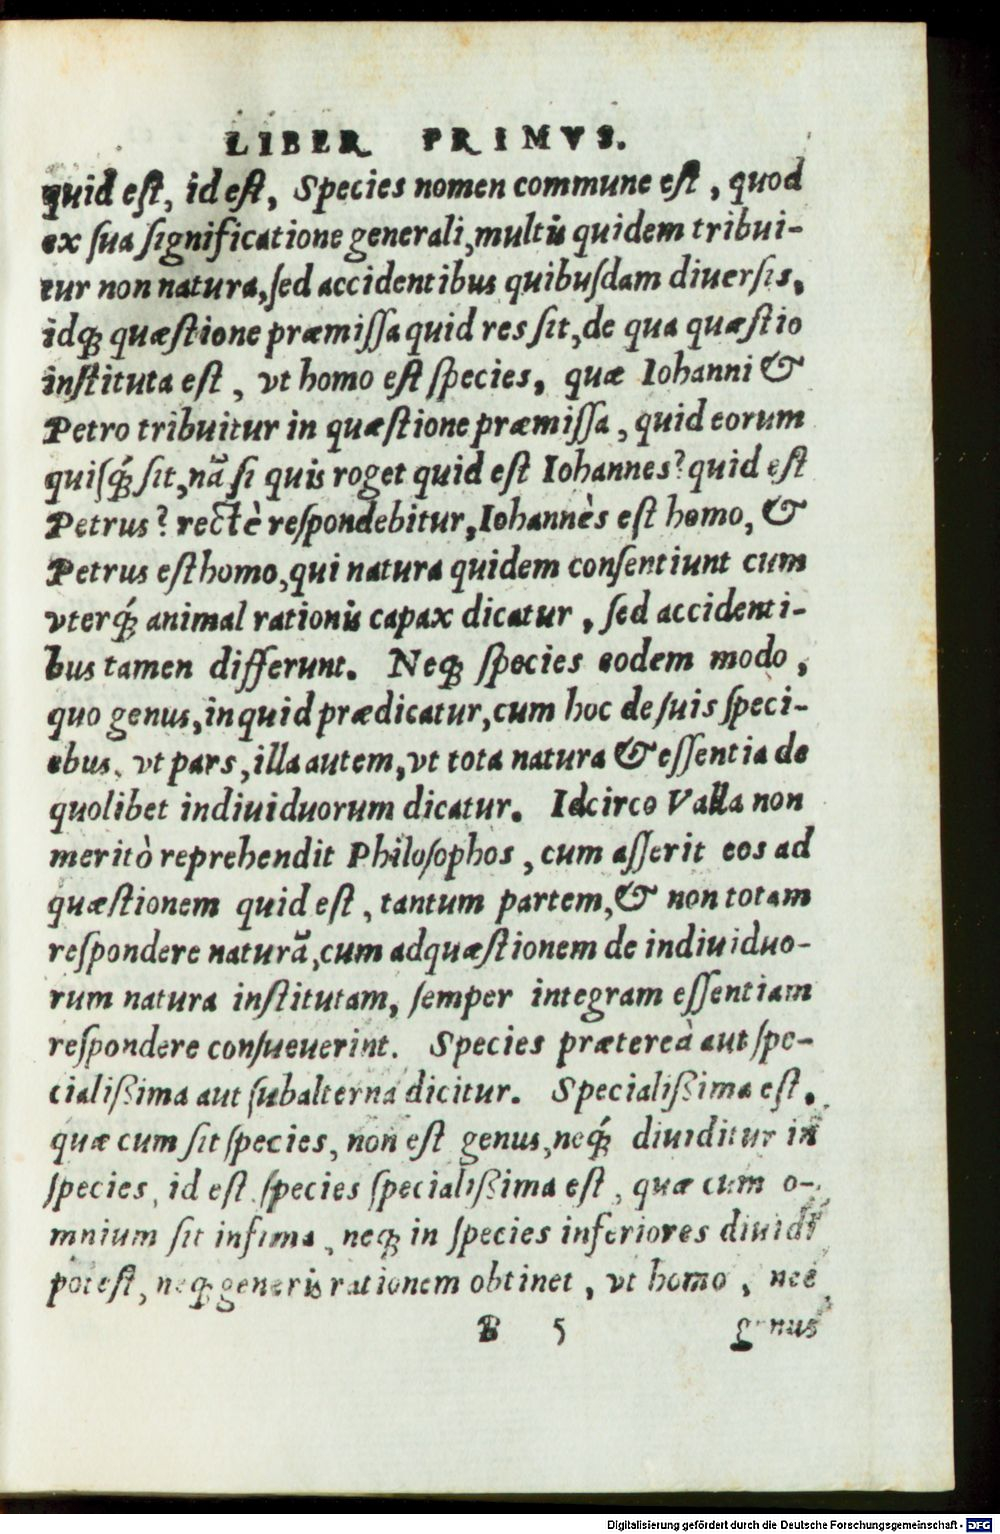 LIBER PRIMVS.
quid est, id est, Species nomen commune est, quod
ex sua significatione generali, multis quidem tribui-
tur non natura, sed accidentibus quibusdam diuersis,
idq́; quæstione præmissa quid res sit, de qua quæstio
instituta est, vt homo est species, quæ Iohanni &
Petro tribuitur in quæstione præmissa, quid eorum
quisq́; sit, nã si quis roget quid est Iohannes? quid est
Petrus? rectè respondebitur, Iohannès est homo, &
Petrus est homo, qui natura quidem consentiunt cum
vterq́; animal rationis capax dicatur, sed accidenti-
bus tamen differunt. Neq; species eodem modo,
quo genus, in quid prædicatur, cum hoc de suis speci-
ebus, vt pars, illa autem, vt tota natura & essentia de
quolibet indiuiduorum dicatur. Idcirco Valla non
meritò reprehendit Philosophos, cum asserit eos ad
quæstionem quid est, tantum partem, & non totam
respondere naturã, cum ad quæstionem de indiuiduo-
rum natura institutam, semper integram essentiam
respondere consueuerint. Species prætereà aut spe-
cialißima aut subalterna dicitur. Specialißima est,
quæ cum sit species, non est genus, neq́; diuiditur in
species, id est species specialißima est, quæ cum o-
mnium sit infima, neq; in species inferiores diuidi
potest, neq; generis rationem obtinet, vt homo, nec
B 5 genus
Digitalisierung gefördert durch die Deutsche Forschungsgemeinschaft - DFG